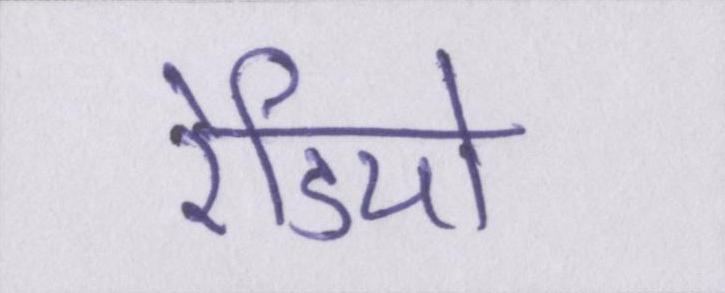 रेडियो